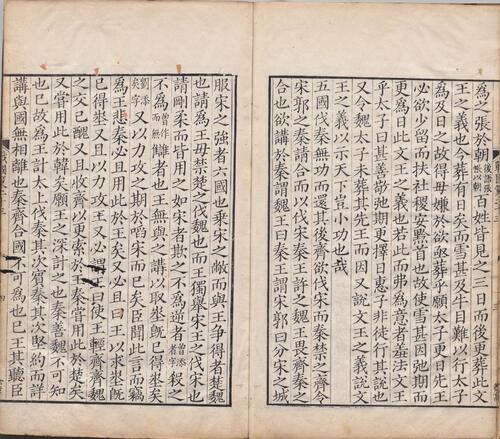 為之張於朝後語張帳以朝百姓皆見之三日而後更葬此文
王之義也今葬有日矣而雪甚及牛目難以行太子
為及日之故得毋嫌於欲亟葬乎願太子更日先王
必欲少留而扶社稷安黔首也故使雪甚因弛期而
更為日此文王之義也若此而弗為意者羞法文王
乎太子曰甚善敬弛期更擇日惠子非徒行其說也
又令魏太子未葬其先王而因又說文王之義說文
王之義以示天下豈小功也哉
五國伐秦無功而還其後齊欲伐宋而秦禁之齊令
宋郭之秦請合而以伐宋秦王許之魏王畏齊秦之
合也欲講於秦謂魏王曰秦王謂宋郭曰分宋之城
服宋之強者六國也乗宋之敝而與王爭得者楚魏
也請為王毋禁楚之伐魏也而王獨舉宋王之伐宋也
請剛柔而皆用之如宋者欺之不為逆者曾添者字殺之
不為曾作而無讎者也王無與之講以取埊旣已得埊矣
劉添矣字又以力攻之期於啗宋而已矣臣聞此言而竊
為王悲秦必且用此於王矣又必且曰王以求埊旣
已得埊又且以力攻王又必謂王曰使王輕齊齊魏
之交已醜又且收齊以更索於王秦嘗用此於楚矣
又嘗用此於韓矣願王之深計之也秦善魏不可知
也已故為王計太上伐秦其次賓秦其次堅約而詳
講與國無相離也秦齊合國不可為也已王其聽臣